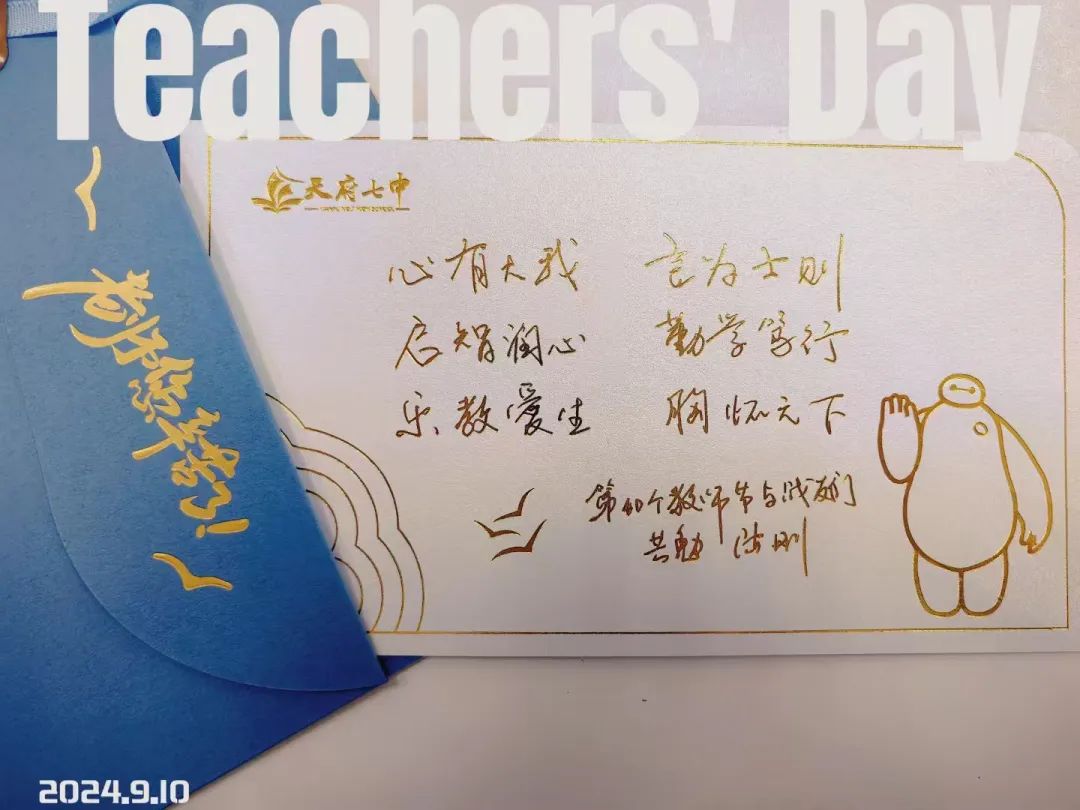 Teachers' Day
天府七中
心有大我 言为士则
启智润心 勤学笃行
乐教爱生 胸怀天下
第40个教师节与战友们
共勉
老师您辛苦了!
2024.9.10